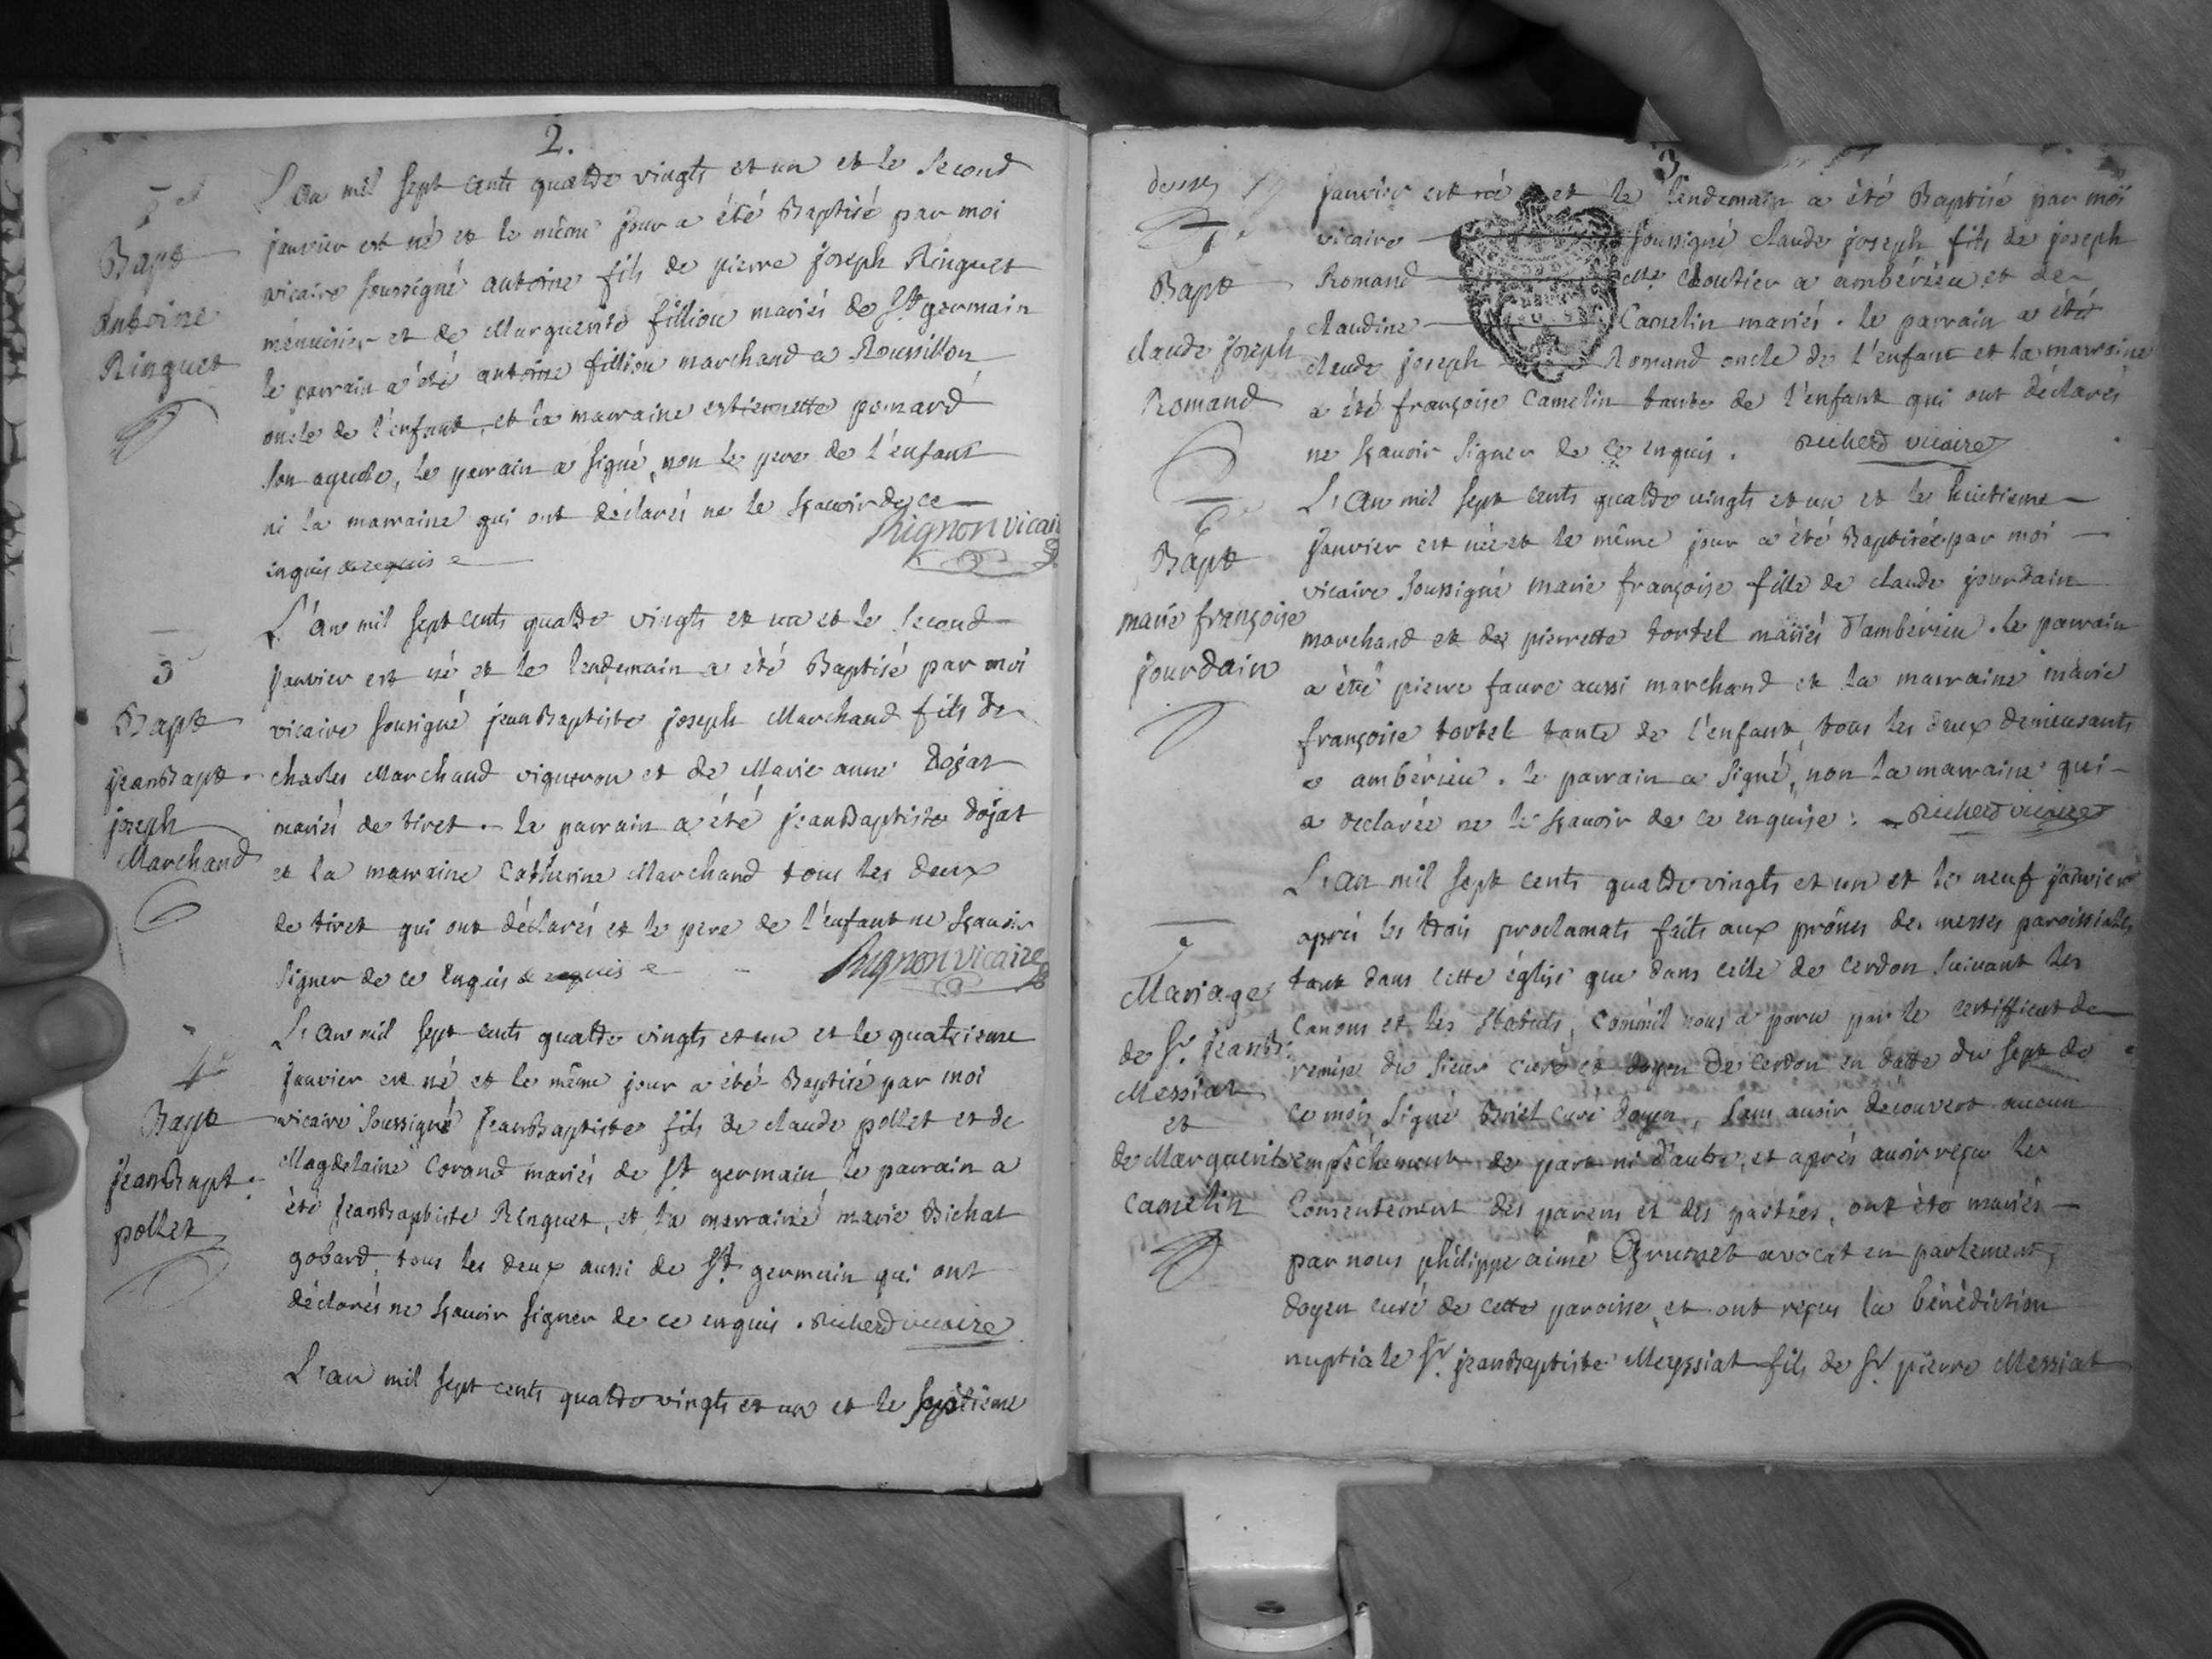 2.
L'an mil sept cents quattre vingts et un et le second
Bapt
Antoine
Ringuet
janvier est né et le même jour a été Baptisé par moi
vicaire soussigné antoine fils de pierre joseph Ringuet
menuisier et de Marguerite fillion mariés de St germain
le parrain a été antoine fillion marchand a Roussillon
oncle de l'enfant, et la marraine estiennette ponard
son ayeule, le parrain a signé, non le pere de l'enfant
ni la marraine qui ont déclarés ne le sçavoir de ce
enquis
Rignon vicaire
3
Bapt
jean Bapt.
joseph
Marchand
L'an mil sept cents quattre vingts et un et le second
janvier est né et le lendemain a été Baptisé par moi
vicaire sousigné jean Baptiste joseph Marchand fils de
charles Marchand vigneron et de Marie anne Dojat
mariés de tiret. le parrain a été jean Baptiste Dojat
et la marraine Catherine Marchand tous les deux
de tiret qui ont déclarés et le pere de l'enfant ne sçavoir
signer de ce enquis
Rignon vicaire
4e
Bapt
jean Bapt.
pollet
L'an mil sept cents quattre vingts et un et le quatrieme
janvier est né et le même jour a été Baptisé par moi
vicaire soussigné jean Baptiste fils de claude pollet et de
Magdelaine Corand mariés de St germain le parrain a
été jean Baptiste Ringuet, et la marraine marie Bichat
gobard, tous les deux aussi de St germain qui ont
déclarés ne sçavoir signer de ce enquis. Richerd vicaire
L'an mil sept cents quattre vingts et un et le septieme
3
Bapt
claude joseph
Romand
janvier est né et le lendemain a été Baptisé par moi
vicaire soussigné claude joseph fils de joseph
Romand cloutier a ambérieu et de
claudine Camelin mariés. le parrain a été
claude joseph Romand oncle de l'enfant et la marraine
a été françoise Camelin tante de l'enfant qui ont déclarés
ne sçavoir signer de ce enquis. Richerd vicaire
Bapt
marie françoise
jourdain
L'an mil sept cents quattre vingts et un et le huitieme
janvier est née et le même jour a été Baptisée par moi
vicaire soussigné marie françoise fille de claude jourdain
marchand et de pierrette tortel mariés d'ambérieu. le parrain
a été pierre faure aussi marchand et la marraine marie
françoise tortel tante de l'enfant, tous les deux demeurants
a ambérieu. le parrain a signé, non la marraine qui
a declarée ne le sçavoir de ce enquise: Richerd vicaire
Mariage
de Sr jean B.
Messiat
et
de Marguerite
Camelin
L'an mil sept cents quattre vingts et un et le neuf janvier
aprés les trois proclamats faits aux prônes des messes paroissiales
tant dans cette église que dans celle de cerdon suivant les
canons et les statuts, comm'il nous a paru par le certifficat de
remise du sieur curé et doyen de cerdon en datte du sept de
ce mois signé curé doyen, sans avoir decouvert aucun
empéchement de part ni d'autre, et aprés avoir reçu le
consentement des parens et des parties, ont été mariés
par nous philippe aimé avocat en parlement,
doyen curé de cette paroisse, et ont reçus la bénédiction
nuptiale Sr. jean Baptiste Meyssiat fils de Sr pierre Messiat